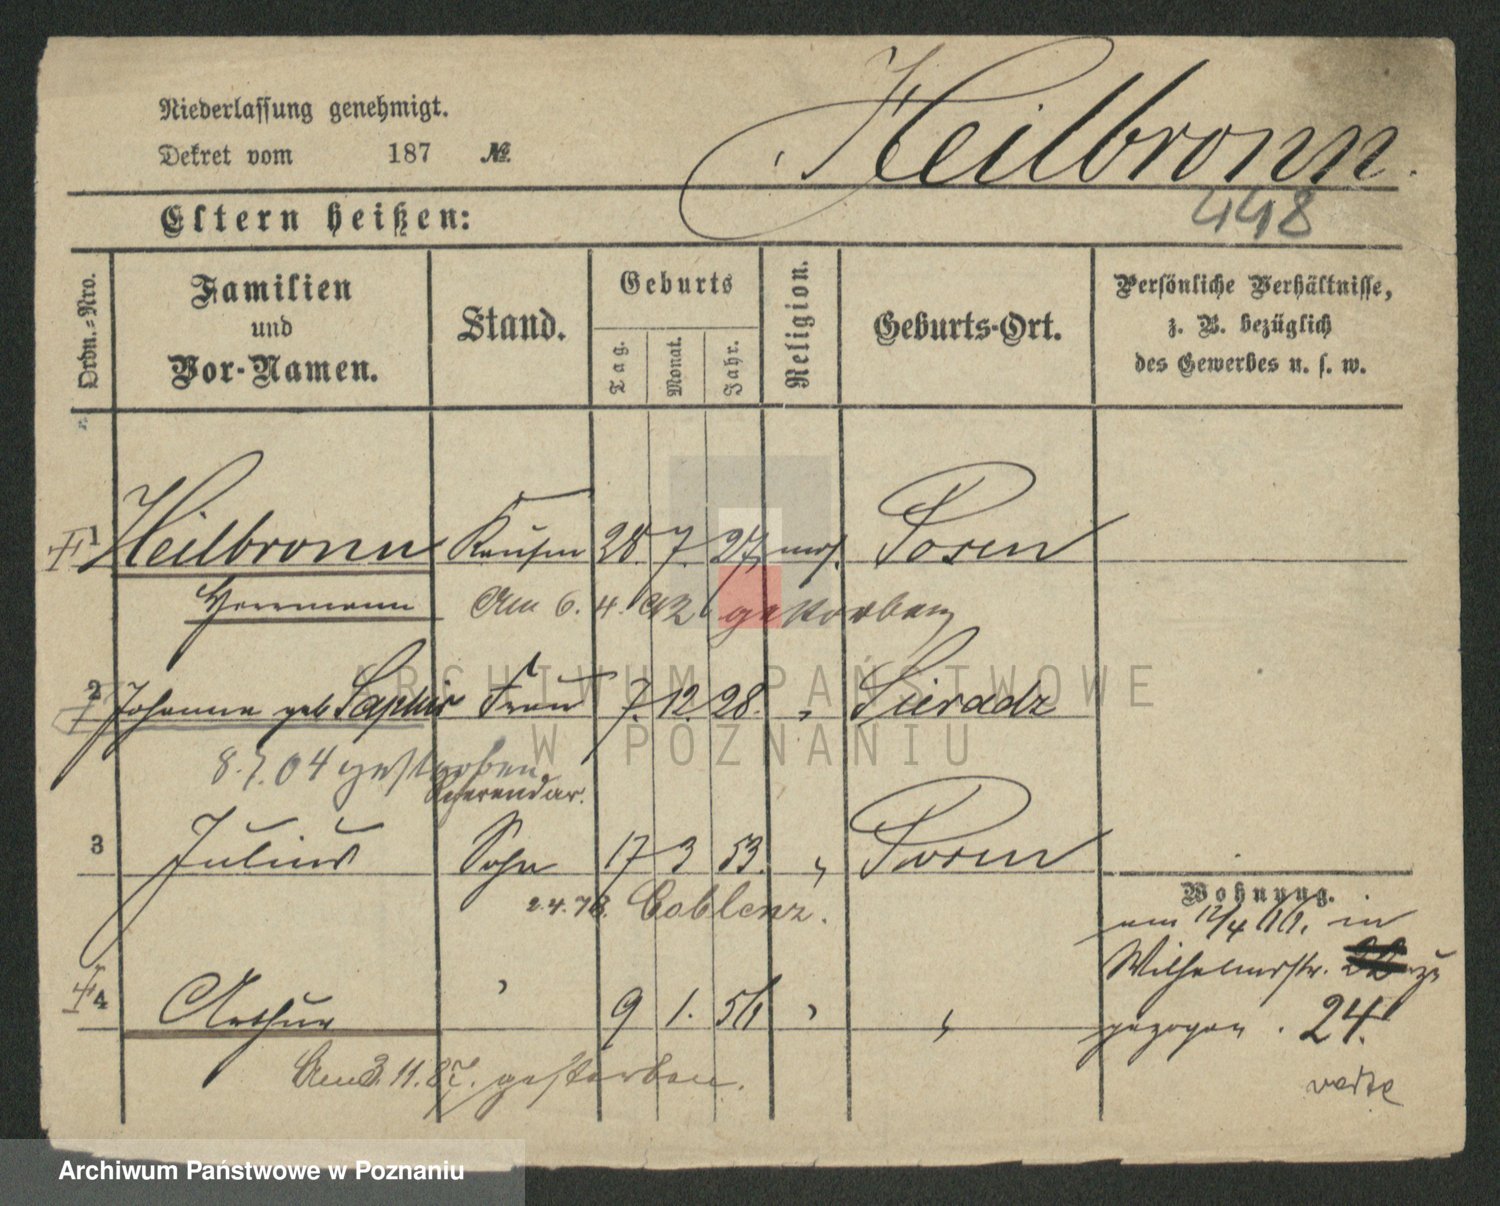 Niederlassung genehmigt.
Dekret vom 187 №
Heilbronn.
448
Eltern heißen:
Ordn.-Nro.
Familien und Vor-Namen.
Stand.
Geburts
Tag.
Monat.
Jahr.
Religion.
Geburts-Ort.
Persönliche Verhältnisse,
z. B. bezüglich
des Gewerbes u. s. w.
1 Heilbronn Kaufm 28. 7. 27. mos. Posen
Herrmann Am 6. 4. 92 gestorben
2 Johanna geb Saphir Frau 7. 12. 28. " Sieradz
8. 7. 04 gestorben.
Referendar.
3 Julius Sohn 17 3 53. " Posen
2.4.78. Coblenz.
Wohnung.
am 12/4 in
Wilhelmstr.
4 Arthur " 9 1. " "
gezogen. 24.
Am 3. 11. 87. gestorben.
verte
ARCHIWUM PAŃSTWOWE
W POZNANIU
Archiwum Państwowe w Poznaniu